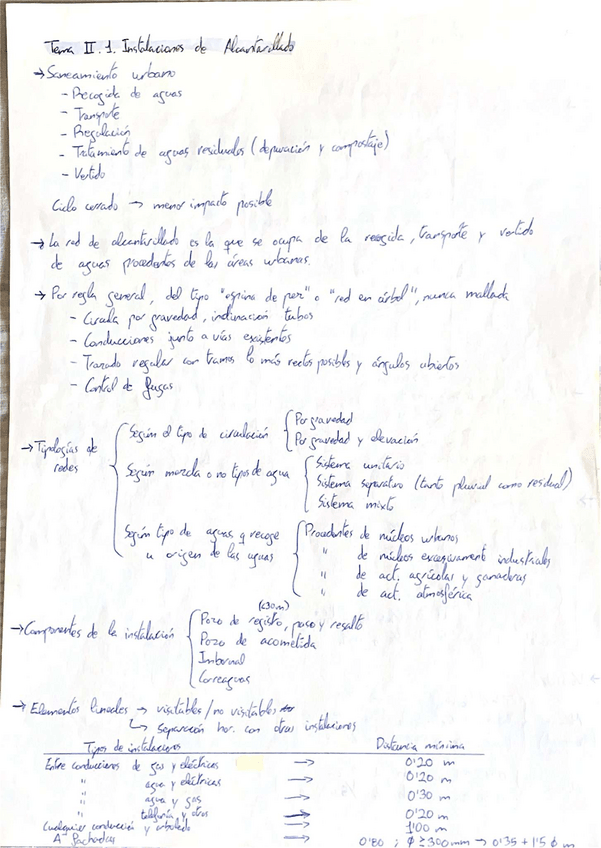 Tema II.1. Instalaciones de Alcantarillado
→ Saneamiento urbano
- Recogida de aguas
- Transporte
- Regulación
- Tratamiento de aguas residuales (depuración y compostaje)
- Vertido
Ciclo cerrado → menor impacto posible
→ La red de alcantarillado es la que se ocupa de la recogida, transporte y vertido
de aguas procedentes de las áreas urbanas.
→ Por regla general, del tipo "espina de pez" o "red en árbol", nunca mallada
- Circula por gravedad, inclinación tubos
- Conducciones junto a vías existentes
- Trazado regular con tramos lo más rectos posibles y ángulos abiertos
- Control de fugas
→ Tipologías de redes
Según el tipo de circulación
Por gravedad
Por gravedad y elevación
Según mezcla o no tipos de agua
Sistema unitario
Sistema separativo (tanto pluvial como residual)
Sistema mixto
Según tipo de aguas q recoge
u origen de las aguas
Procedentes de núcleos urbanos
" de núcleos excesivamente industriales
" de act. agrícolas y ganaderas
" de act. atmosférica
→ Componentes de la instalación
(<30m)
Pozo de registro, paso y resalto
Pozo de acometida
Imbornal
Correaguas
→ Elementos lineales → visitables/no visitables
↳ separación hor. con otras instalaciones
Tipos de instalaciones Distancia mínima
Entre conducciones de gas y eléctricas → 0'20 m
" agua y eléctricas → 0'20 m
" agua y gas → 0'30 m
" telefonía y otros → 0'20 m
Cualquier conducción y arbolado → 1'00 m
A fachadas → 0'80 ; Ø ≥ 300mm → 0'35 + 1'5 Ø m